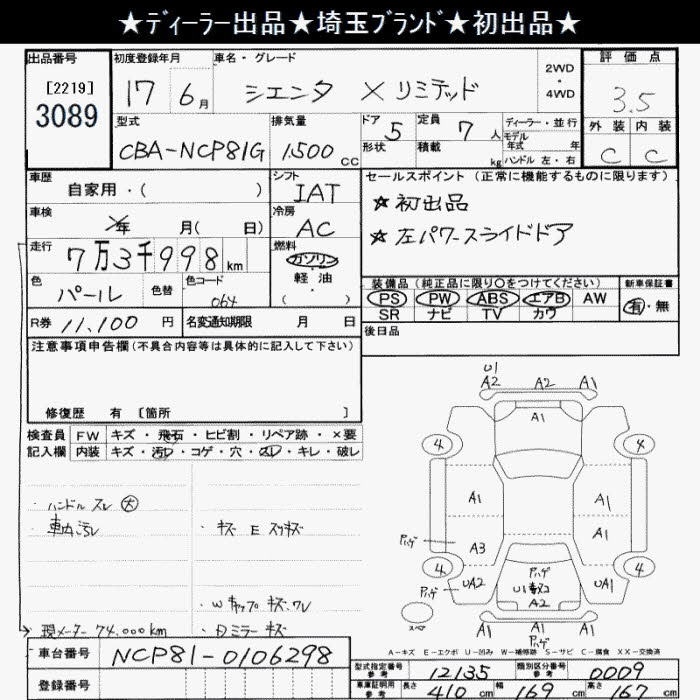 ★ディーラー出品★埼玉ブランド★初出品★
出品番号 初度登録年月 車名・グレード 評価点
[2219] 17 6月 シエンタ Xリミテッド 2WD・4WD 3.5
3089
型式 排気量 ドア 5 定員 7人 ディーラー・並行 外装 内装
CBA-NCP81G 1500cc 形状 積載 kg モデル年式 年 C C
ハンドル 左・右
車歴 自家用・( ) シフト IAT セールスポイント(正常に機能するものに限ります)
車検 年 月( 日) 冷房 AC ★初出品
走行 7万3千998km 燃料 ガソリン ★左パワースライドドア
軽油
( )
色 パール 色替 色コード 064 装備品(純正品に限り○をつけてください) 新車保証書
PS PW ABS エアB AW 有・無
SR ナビ TV カワ
R券 11,100円 名変通知期限 月 日 後日品
注意事項申告欄(不具合内容等は具体的に記入して下さい)
修復歴 有 [箇所 ]
検査員 FW キズ・飛石・ヒビ割・リペア跡・×要
記入欄 内装 キズ・汚レ・コゲ・穴・スレ・キレ・破レ
・ハンドルスレ 大
・車内汚レ ・キズ E スリキズ
・Wキャップキズ・ワレ
→現メーター 74.000km ・Dミラーキズ
U1
A2 A2 A1
A1
4 4
A1 A1
A1
ハゲ A3
4 4
ハゲ UA2 ハゲ UA1
A2
スペア A1 A1
ハゲ
A-キズ E-エクボ U-凹み W-補修跡 S-サビ C-腐食 XX-交換済
車台番号 NCP81-0106298
型式指定番号 参考 12135 類別区分番号 参考 0009
登録番号 車庫証明用 参考 長さ 410cm 幅 169cm 高さ 167cm